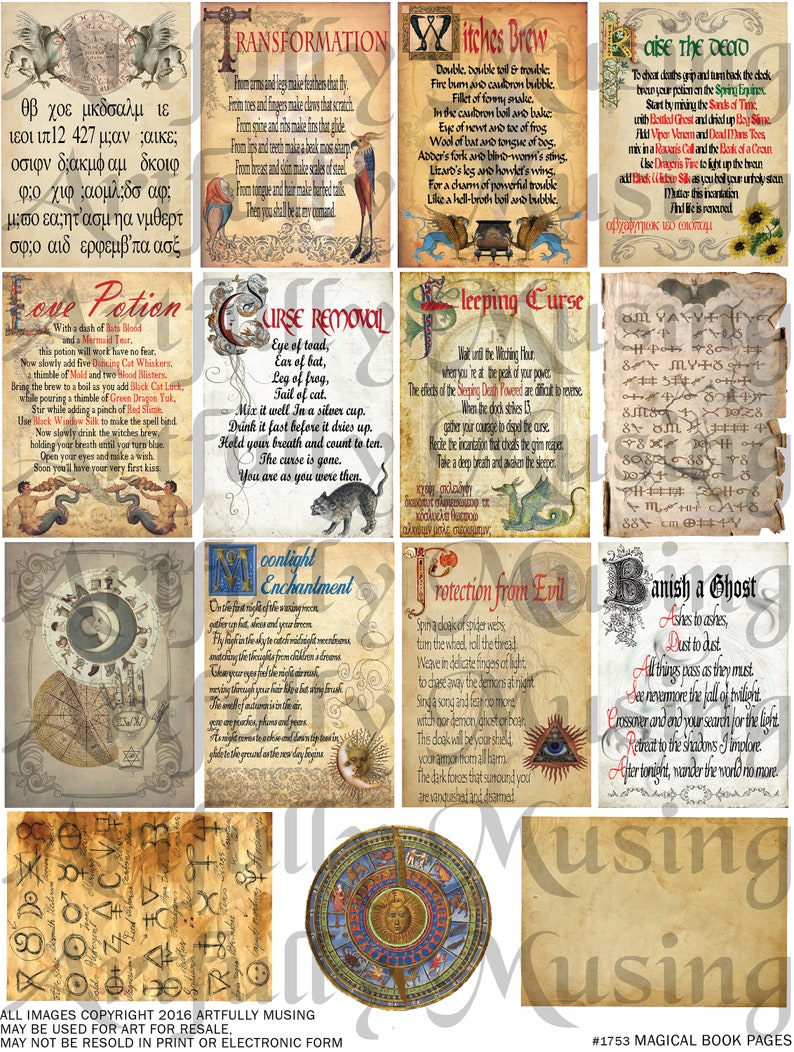 θβ χοε μκδσαλμ ιε
ιεοι ιπ12 427 μ;αν ;αικε;
οσιφν δ;ακμφ αμ δκοιφ
φ;ο χιφ ;αομλ;δσ αφ;
μ;πο εα;ητ'ασμ ηα νμθερτ
σφ;ο αιδ ερφεμβ'πα ασξ
TRANSFORMATION
From arms and legs make feathers that fly.
From toes and fingers make claws that scratch.
From spine and ribs make fins that glide.
From lips and teeth make a beak most sharp.
From breast and skin make scales of steel.
From tongue and hair make barbed tails.
Then you shall be at my comand.
Witches Brew
Double, double toil & trouble;
Fire burn and cauldron bubble.
Fillet of fenny snake,
In the cauldron boil and bake;
Eye of newt and toe of frog,
Wool of bat and tongue of dog,
Adder's fork and blind-worm's sting,
Lizard's leg and howlet's wing,
For a charm of powerful trouble
Like a hell-broth boil and bubble.
Raise the Dead
To cheat deaths grip and turn back the clock
brew your potion on the Spring Equinox.
Start by mixing the Sands of Time,
with Bottled Ghost and dried up Bog Slime.
Add Viper Venem and Dead Mans Toes,
mix in a Raven's Call and the Beak of a Crow.
Use Dragon's Fire to light up the brew,
add Black Widow Silk as you boil your unholy stew.
Mutter this incantation
And life is renewed.
Love Potion
With a dash of Bats Blood
and a Mermaid Tear,
this potion will work have no fear.
Now slowly add five Dancing Cat Whiskers,
a thimble of Mold and two Blood Blisters.
Bring the brew to a boil as you add Black Cat Luck,
while pouring a thimble of Green Dragon Yuk,
Stir while adding a pinch of Red Slime.
Use Black Window Silk to make the spell bind.
Now slowly drink the witches brew,
holding your breath until you turn blue.
Open your eyes and make a wish.
Soon you'll have your very first kiss.
Curse Removal
Eye of toad,
Ear of bat,
Leg of frog,
Tail of cat.
Mix it well In a silver cup.
Drink it fast before it dries up.
Hold your breath and count to ten.
The curse is gone.
You are as you were then.
Sleeping Curse
Wait until the Witching Hour,
when you're at the peak of your power.
The effects of the Sleeping Death Powered are difficult to reverse.
When the clock strikes 13,
gather your courage to dispel the curse.
Recite the incantation that cheats the grim reaper.
Take a deep breath and awaken the sleeper.
Moonlight
Enchantment
On the first night of the waxing moon,
gather up hat, shoes and your broom.
Fly high in the sky to catch midnight moonbeams,
snatching the thoughts from children's dreams.
Close your eyes feel the night air rush,
moving through your hair like a bat wing brush.
The smell of autumn is in the air,
gone are peaches, plums and pears.
As night comes to a close and dawn tip toes in,
glide to the ground as the new day begins.
Protection from Evil
Spin a cloak of spider webs;
turn the wheel, roll the thread.
Weave in delicate fingers of light,
to chase away the demons at night.
Sing a song and fear no more,
witch nor demon, ghost or boar.
This cloak will be your shield,
your armor from all harm.
The dark forces that surround you
are vanquished and disarmed.
Banish a Ghost
Ashes to ashes,
Dust to dust.
All things pass as they must.
See nevermore the fall of twilight.
Crossover and end your search for the light.
Retreat to the shadows I implore.
After tonight, wander the world no more.
Artfully Musing
ALL IMAGES COPYRIGHT 2016 ARTFULLY MUSING
MAY BE USED FOR ART FOR RESALE,
MAY NOT BE RESOLD IN PRINT OR ELECTRONIC FORM
#1753 MAGICAL BOOK PAGES